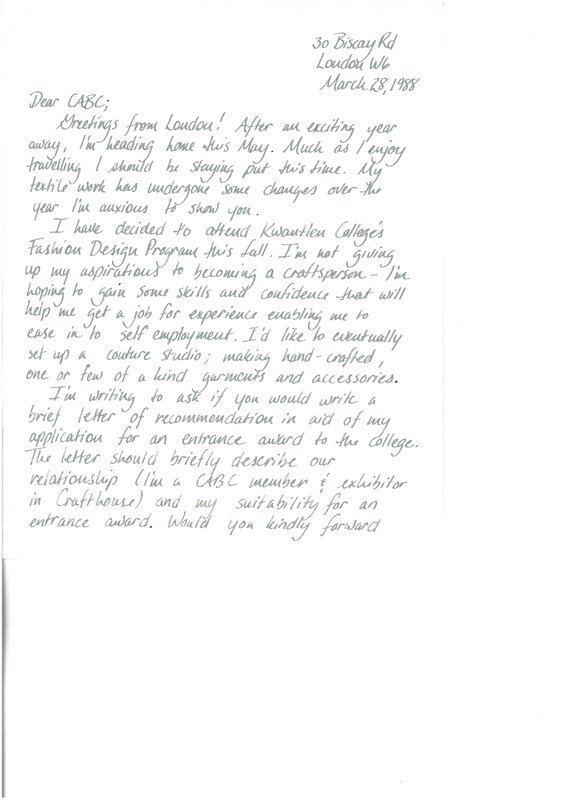 30 Biscay Rd
London W6
March 28, 1988
Dear CABC;
Greetings from London! After an exciting year
away, I'm heading home this May. Much as I enjoy
travelling I should be staying put this time. My
textile work has undergone some changes over the
year I'm anxious to show you.
I have decided to attend Kwantlen College's
Fashion Design Program this fall. I'm not giving
up my aspirations to becoming a craftsperson - I'm
hoping to gain some skills and confidence that will
help me get a job for experience enabling me to
ease in to self employment. I'd like to eventually
set up a couture studio; making hand-crafted,
one or few of a kind garments and accessories.
I'm writing to ask if you would write a
brief letter of recommendation in aid of my
application for an entrance award to the college.
The letter should briefly describe our
relationship (I'm a CABC member & exhibitor
in Crafthouse) and my suitability for an
entrance award. Would you kindly forward